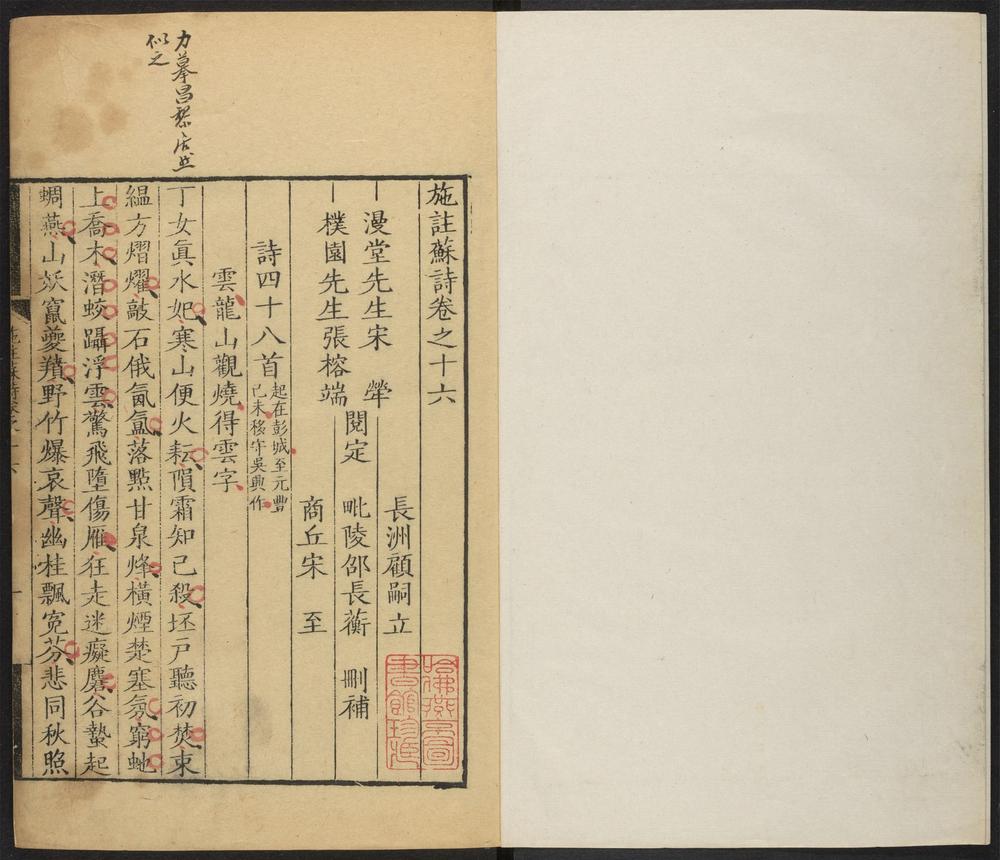 力摹昌黎居然
似之
施註蘇詩卷之十六
漫堂先生宋犖
樸園先生張榕端
閱定
長洲顧嗣立
毗陵邵長蘅
商丘宋至
刪補
詩四十八首
起在彭城至元豐
己未移守吳興作
雲龍山觀燒得雲字
丁女眞水妃寒山便火耘隕霜知已殺坯戶聽初焚束
縕方熠燿敲石俄氤氳落點甘泉烽橫煙楚塞氛窮虵
上喬木潛蛟躡浮雲驚飛墮傷雁狂走迷癡麏谷蟄起
蜩燕山妖竄夔羵野竹爆哀聲幽桂飄冤芬悲同秋照
哈佛燕京圖
書館珍藏